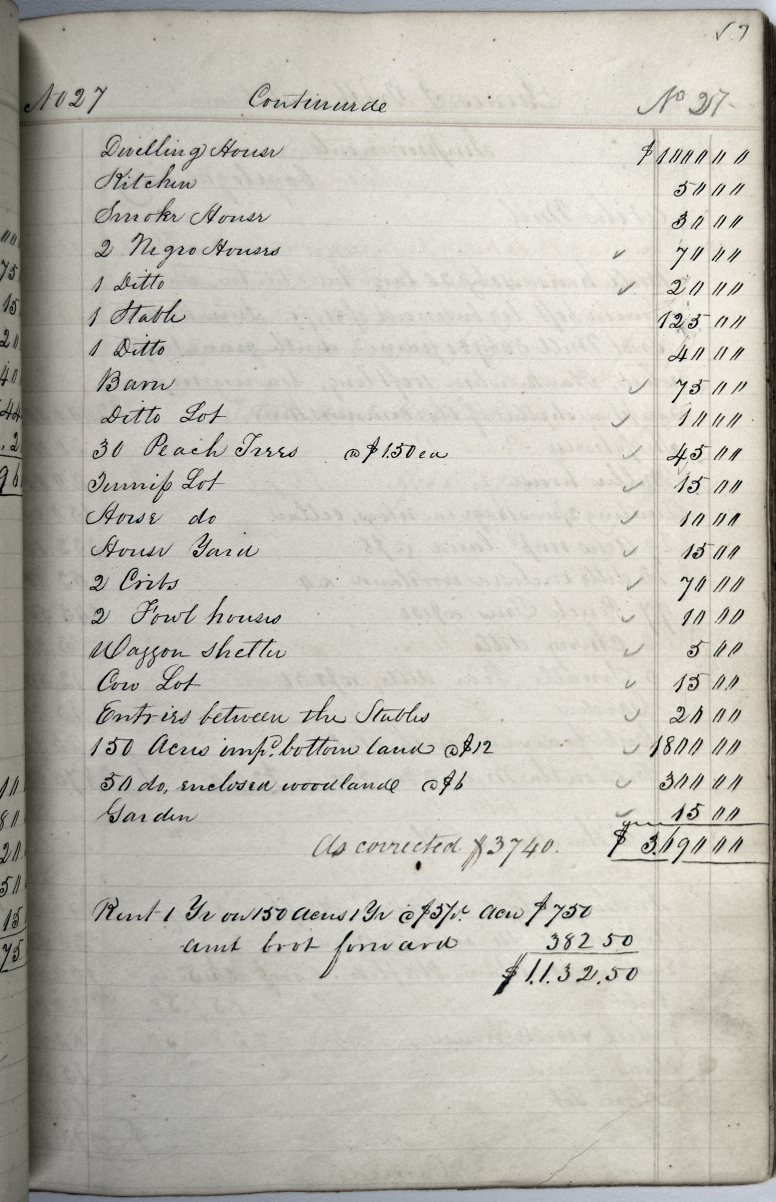 57
No 27 Continuede No 27
Dwelling House $1000 00
Kitchen 50 00
Smoke House 30 00
2 Negro Houses 70 00
1 Ditto 20 00
1 Stable 125 00
1 Ditto 40 00
Barn 75 00
Ditto Lot 10 00
30 Peach Trees @ $1.50 ea 45 00
Turnip Lot 15 00
Horse do 10 00
House Yard 15 00
2 Cribs 70 00
2 Fowl houses 10 00
Waggon shelter 5 00
Cow Lot 15 00
Entries between the Stables 20 00
150 Acres impd. bottom land @ $12 1800 00
50 do, enclosed woodlande @ $6 300 00
Garden 15 00
As corrected $3740. $ 3690 00
Rent 1 Yr on 150 acres 1 Yr @ $5 pr. Acre $750
amt brot forward 382 50
$1132.50